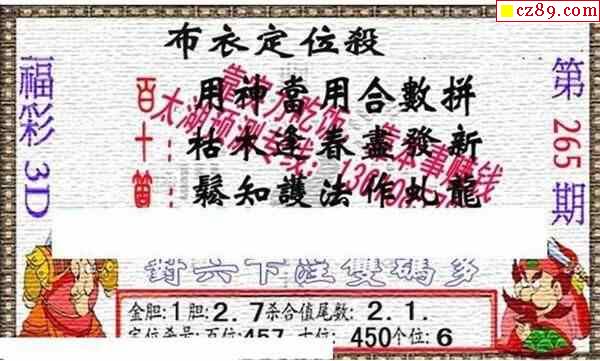 cz89.com
布衣定位殺
福彩3D
第265期
百：用神當用合數拼
十：枯木逢春盡發新
個：鬆知護法作虬龍
靠实力吃饭 靠本事赚钱
太湖预测专线：13
對六下注雙碼多
金胆:1胆:2.7杀合值尾数:2.1.
定位杀号:百位:457 十位:450个位:6